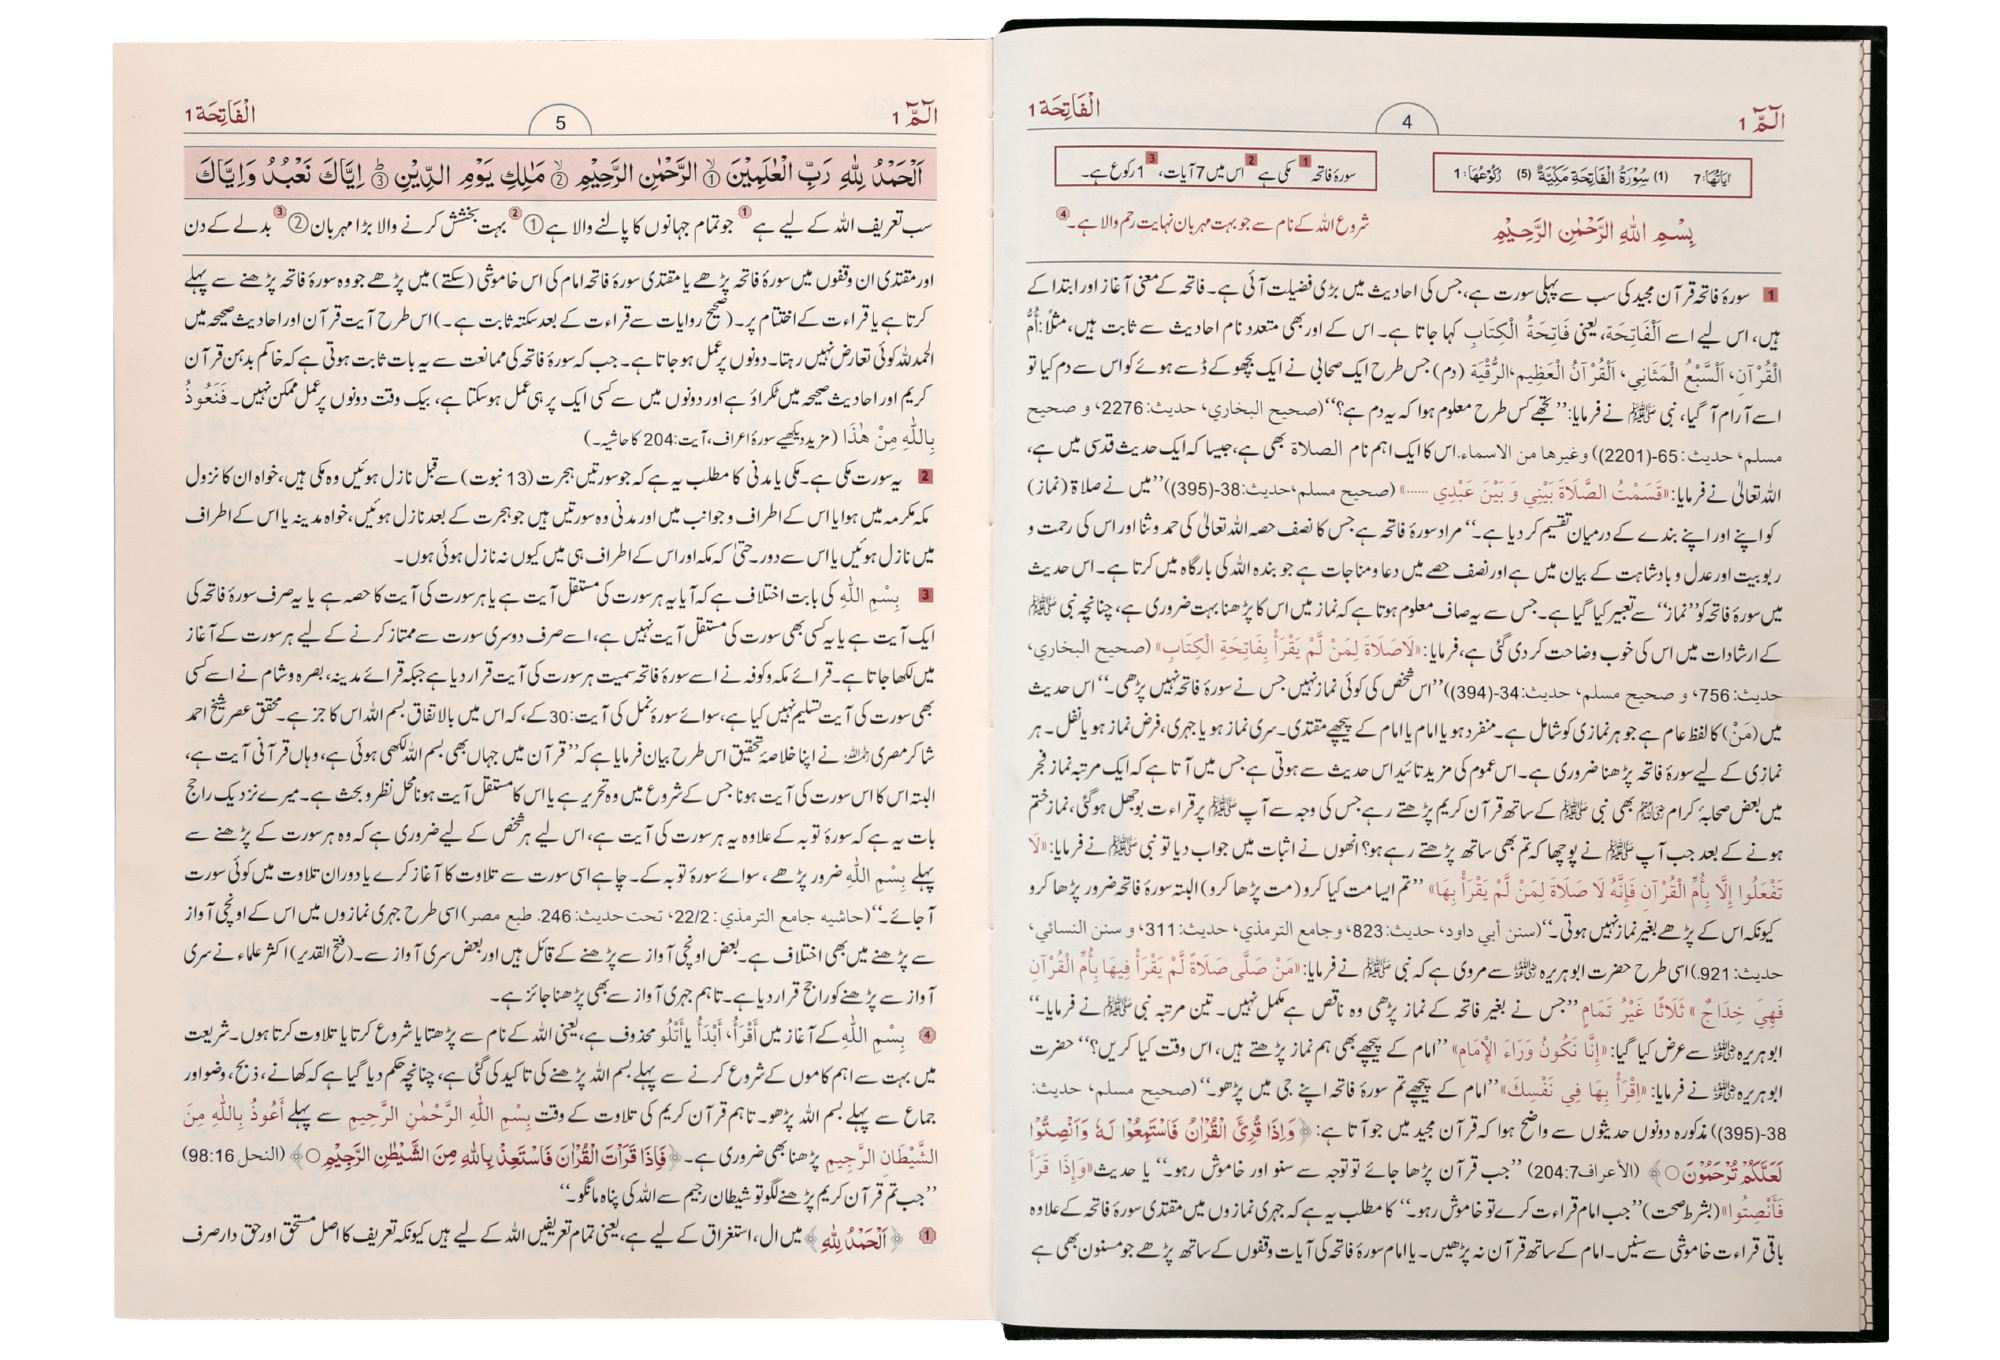 الٓمّٓ 1
4
الْفَاتِحَة 1
اٰيَاتُهَا: 7 (1) سُوْرَةُ الْفَاتِحَةِ مَكِّيَّةٌ (5) رُكُوْعُهَا: 1
سورۂ فاتحہ 1 مکی ہے 2 اس میں 7 آیات، 3 1 رکوع ہے۔
بِسْمِ اللّٰهِ الرَّحْمٰنِ الرَّحِيْمِ
شروع اللہ کے نام سے جو بہت مہربان نہایت رحم والا ہے۔ 4
1 سورۂ فاتحہ قرآن مجید کی سب سے پہلی سورت ہے، جس کی احادیث میں بڑی فضیلت آئی ہے۔ فاتحہ کے معنی آغاز اور ابتدا کے
ہیں، اس لیے اسے اَلْفَاتِحَة، یعنی فَاتِحَةُ الْكِتَابِ کہا جاتا ہے۔ اس کے اور بھی متعدد نام احادیث سے ثابت ہیں، مثلاً: أُمُّ
الْقُرْآنِ، اَلسَّبْعُ الْمَثَانِي، اَلْقُرْآنُ الْعَظِيم، الرُّقْيَة (دم) جس طرح ایک صحابی نے ایک بچھو کے ڈسے ہوئے کو اس سے دم کیا تو
اسے آرام آ گیا، نبی ﷺ نے فرمایا: ’’تجھے کس طرح معلوم ہوا کہ یہ دم ہے؟‘‘ (صحيح البخاري، حديث: 2276، و صحيح
مسلم، حديث: 65-(2201)) وغيرها من الاسماء. اس کا ایک اہم نام الصلاة بھی ہے، جیسا کہ ایک حدیث قدسی میں ہے،
اللہ تعالیٰ نے فرمایا: «قَسَمْتُ الصَّلَاةَ بَيْنِي وَ بَيْنَ عَبْدِي ......» (صحيح مسلم، حديث: 38-(395)) ’’میں نے صلاة (نماز)
کو اپنے اور اپنے بندے کے درمیان تقسیم کر دیا ہے۔‘‘ مراد سورۂ فاتحہ ہے جس کا نصف حصہ اللہ تعالیٰ کی حمد و ثنا اور اس کی رحمت و
ربوبیت اور عدل و بادشاہت کے بیان میں ہے اور نصف حصے میں دعا و مناجات ہے جو بندہ اللہ کی بارگاہ میں کرتا ہے۔ اس حدیث
میں سورۂ فاتحہ کو ’’نماز‘‘ سے تعبیر کیا گیا ہے۔ جس سے یہ صاف معلوم ہوتا ہے کہ نماز میں اس کا پڑھنا بہت ضروری ہے، چنانچہ نبی ﷺ
کے ارشادات میں اس کی خوب وضاحت کر دی گئی ہے، فرمایا: «لَاصَلَاةَ لِمَنْ لَّمْ يَقْرَأْ بِفَاتِحَةِ الْكِتَابِ» (صحيح البخاري،
حديث: 756، و صحيح مسلم، حديث: 34-(394)) ’’اس شخص کی کوئی نماز نہیں جس نے سورۂ فاتحہ نہیں پڑھی۔‘‘ اس حدیث
میں (مَنْ) کا لفظ عام ہے جو ہر نمازی کو شامل ہے۔ منفرد ہو یا امام یا امام کے پیچھے مقتدی۔ سری نماز ہو یا جہری، فرض نماز ہو یا نفل۔ ہر
نمازی کے لیے سورۂ فاتحہ پڑھنا ضروری ہے۔ اس عموم کی مزید تائید اس حدیث سے ہوتی ہے جس میں آتا ہے کہ ایک مرتبہ نماز فجر
میں بعض صحابۂ کرام رضی اللہ عنہم بھی نبی ﷺ کے ساتھ قرآن کریم پڑھتے رہے جس کی وجہ سے آپ ﷺ پر قراءت بوجھل ہو گئی، نماز ختم
ہونے کے بعد جب آپ ﷺ نے پوچھا کہ تم بھی ساتھ پڑھتے رہے ہو؟ انھوں نے اثبات میں جواب دیا تو نبی ﷺ نے فرمایا: «لَا
تَفْعَلُوا إِلَّا بِأُمِّ الْقُرْآنِ فَإِنَّهُ لَا صَلَاةَ لِمَنْ لَّمْ يَقْرَأْ بِهَا» ’’تم ایسا مت کیا کرو (مت پڑھا کرو) البتہ سورۂ فاتحہ ضرور پڑھا کرو
کیونکہ اس کے پڑھے بغیر نماز نہیں ہوتی۔‘‘ (سنن أبي داود، حديث: 823، وجامع الترمذي، حديث: 311، و سنن النسائي،
حديث: 921.) اسی طرح حضرت ابوہریرہ رضی اللہ عنہ سے مروی ہے کہ نبی ﷺ نے فرمایا: «مَنْ صَلَّى صَلَاةً لَّمْ يَقْرَأْ فِيهَا بِأُمِّ الْقُرْآنِ
فَهِيَ خِدَاجٌ» ثَلَاثًا غَيْرُ تَمَامٍ ’’جس نے بغیر فاتحہ کے نماز پڑھی وہ ناقص ہے مکمل نہیں۔ تین مرتبہ نبی ﷺ نے فرمایا۔‘‘
ابوہریرہ رضی اللہ عنہ سے عرض کیا گیا: «إِنَّا نَكُونُ وَرَاءَ الْإِمَامِ» ’’امام کے پیچھے بھی ہم نماز پڑھتے ہیں، اس وقت کیا کریں؟‘‘ حضرت
ابوہریرہ رضی اللہ عنہ نے فرمایا: «اِقْرَأْ بِهَا فِي نَفْسِكَ» ’’امام کے پیچھے تم سورۂ فاتحہ اپنے جی میں پڑھو۔‘‘ (صحيح مسلم، حديث:
38-(395)) مذکورہ دونوں حدیثوں سے واضح ہوا کہ قرآن مجید میں جو آتا ہے: ﴿وَاِذَا قُرِئَ الْقُرْاٰنُ فَاسْتَمِعُوْا لَهٗ وَاَنْصِتُوْا
لَعَلَّكُمْ تُرْحَمُوْنَ ○﴾ (الأعراف 204:7) ’’جب قرآن پڑھا جائے تو توجہ سے سنو اور خاموش رہو۔‘‘ یا حدیث «وَإِذَا قَرَأَ
فَأَنْصِتُوا» (بشرط صحت) ’’جب امام قراءت کرے تو خاموش رہو۔‘‘ کا مطلب یہ ہے کہ جہری نمازوں میں مقتدی سورۂ فاتحہ کے علاوہ
باقی قراءت خاموشی سے سنیں۔ امام کے ساتھ قرآن نہ پڑھیں۔ یا امام سورۂ فاتحہ کی آیات وقفوں کے ساتھ پڑھے جو مسنون بھی ہے
الٓمّٓ 1
5
الْفَاتِحَة 1
اَلْحَمْدُ لِلّٰهِ رَبِّ الْعٰلَمِيْنَ ① الرَّحْمٰنِ الرَّحِيْمِ ② مٰلِكِ يَوْمِ الدِّيْنِ ③ اِيَّاكَ نَعْبُدُ وَاِيَّاكَ
سب تعریف اللہ کے لیے ہے 1 جو تمام جہانوں کا پالنے والا ہے ① 2 بہت بخشش کرنے والا بڑا مہربان ② 3 بدلے کے دن
اور مقتدی ان وقفوں میں سورۂ فاتحہ پڑھے یا مقتدی سورۂ فاتحہ امام کی اس خاموشی (سکتے) میں پڑھے جو وہ سورۂ فاتحہ پڑھنے سے پہلے
کرتا ہے یا قراءت کے اختتام پر۔ (صحیح روایات سے قراءت کے بعد سکتہ ثابت ہے۔) اس طرح آیت قرآن اور احادیث صحیحہ میں
الحمدللہ کوئی تعارض نہیں رہتا۔ دونوں پر عمل ہو جاتا ہے۔ جب کہ سورۂ فاتحہ کی ممانعت سے یہ بات ثابت ہوتی ہے کہ خاکم بدہن قرآن
کریم اور احادیث صحیحہ میں ٹکراؤ ہے اور دونوں میں سے کسی ایک پر ہی عمل ہو سکتا ہے، بیک وقت دونوں پر عمل ممکن نہیں۔ فَنَعُوذُ
بِاللّٰهِ مِنْ هٰذَا (مزید دیکھیے سورۂ اعراف، آیت: 204 کا حاشیہ۔)
2 یہ سورت مکی ہے۔ مکی یا مدنی کا مطلب یہ ہے کہ جو سورتیں ہجرت (13 نبوت) سے قبل نازل ہوئیں وہ مکی ہیں، خواہ ان کا نزول
مکہ مکرمہ میں ہوا یا اس کے اطراف و جوانب میں اور مدنی وہ سورتیں ہیں جو ہجرت کے بعد نازل ہوئیں، خواہ مدینہ یا اس کے اطراف
میں نازل ہوئیں یا اس سے دور۔ حتیٰ کہ مکہ اور اس کے اطراف ہی میں کیوں نہ نازل ہوئی ہوں۔
3 بِسْمِ اللّٰهِ کی بابت اختلاف ہے کہ آیا یہ ہر سورت کی مستقل آیت ہے یا ہر سورت کی آیت کا حصہ ہے یا یہ صرف سورۂ فاتحہ کی
ایک آیت ہے یا یہ کسی بھی سورت کی مستقل آیت نہیں ہے، اسے صرف دوسری سورت سے ممتاز کرنے کے لیے ہر سورت کے آغاز
میں لکھا جاتا ہے۔ قرائے مکہ و کوفہ نے اسے سورۂ فاتحہ سمیت ہر سورت کی آیت قرار دیا ہے جبکہ قرائے مدینہ، بصرہ و شام نے اسے کسی
بھی سورت کی آیت تسلیم نہیں کیا ہے، سوائے سورۂ نمل کی آیت: 30 کے، کہ اس میں بالاتفاق بسم اللہ اس کا جز ہے۔ محقق عصر شیخ احمد
شاکر مصری رحمہ اللہ نے اپنا خلاصۂ تحقیق اس طرح بیان فرمایا ہے کہ ’’قرآن میں جہاں بھی بسم اللہ لکھی ہوئی ہے، وہاں قرآنی آیت ہے،
البتہ اس کا اس سورت کی آیت ہونا جس کے شروع میں وہ تحریر ہے یا اس کا مستقل آیت ہونا محل نظر و بحث ہے۔ میرے نزدیک راجح
بات یہ ہے کہ سورۂ توبہ کے علاوہ یہ ہر سورت کی آیت ہے، اس لیے ہر شخص کے لیے ضروری ہے کہ وہ ہر سورت کے پڑھنے سے
پہلے بِسْمِ اللّٰهِ ضرور پڑھے، سوائے سورۂ توبہ کے۔ چاہے اسی سورت سے تلاوت کا آغاز کرے یا دوران تلاوت میں کوئی سورت
آ جائے۔‘‘ (حاشيه جامع الترمذي: 22/2، تحت حديث: 246. طبع مصر) اسی طرح جہری نمازوں میں اس کے اونچی آواز
سے پڑھنے میں بھی اختلاف ہے۔ بعض اونچی آواز سے پڑھنے کے قائل ہیں اور بعض سری آواز سے۔ (فتح القدیر) اکثر علماء نے سری
آواز سے پڑھنے کو راجح قرار دیا ہے۔ تاہم جہری آواز سے بھی پڑھنا جائز ہے۔
4 بِسْمِ اللّٰهِ کے آغاز میں أَقْرَأُ، أَبْدَأُ یا أَتْلُو محذوف ہے، یعنی اللہ کے نام سے پڑھتا یا شروع کرتا یا تلاوت کرتا ہوں۔ شریعت
میں بہت سے اہم کاموں کے شروع کرنے سے پہلے بسم اللہ پڑھنے کی تاکید کی گئی ہے، چنانچہ حکم دیا گیا ہے کہ کھانے، ذبح، وضو اور
جماع سے پہلے بسم اللہ پڑھو۔ تاہم قرآن کریم کی تلاوت کے وقت بِسْمِ اللّٰهِ الرَّحْمٰنِ الرَّحِيمِ سے پہلے أَعُوذُ بِاللّٰهِ مِنَ
الشَّيْطَانِ الرَّجِيمِ پڑھنا بھی ضروری ہے۔ ﴿فَاِذَا قَرَاْتَ الْقُرْاٰنَ فَاسْتَعِذْ بِاللّٰهِ مِنَ الشَّيْطٰنِ الرَّجِيْمِ ○﴾ (النحل 98:16)
’’جب تم قرآن کریم پڑھنے لگو تو شیطان رجیم سے اللہ کی پناہ مانگو۔‘‘
1 ﴿اَلْحَمْدُ لِلّٰهِ﴾ میں ال، استغراق کے لیے ہے، یعنی تمام تعریفیں اللہ کے لیے ہیں کیونکہ تعریف کا اصل مستحق اور حق دار صرف